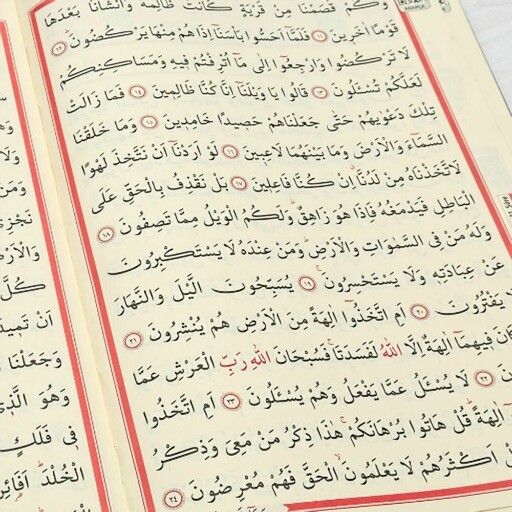 وَكَمْ قَصَمْنَا مِنْ قَرْيَةٍ كَانَتْ ظَالِمَةً وَاَنْشَأْنَا بَعْدَهَا
قَوْمًا اٰخَرٖينَ ﴿١١﴾ فَلَمَّٓا اَحَسُّوا بَأْسَنَٓا اِذَا هُمْ مِنْهَا يَرْكُضُونَ ﴿١٢﴾
لَا تَرْكُضُوا وَارْجِعُٓوا اِلٰى مَٓا اُتْرِفْتُمْ فٖيهِ وَمَسَاكِنِكُمْ
لَعَلَّكُمْ تُسْـَٔلُونَ ﴿١٣﴾ قَالُوا يَا وَيْلَنَٓا اِنَّا كُنَّا ظَالِمٖينَ ﴿١٤﴾ فَمَا زَالَتْ
تِلْكَ دَعْوٰيهُمْ حَتّٰى جَعَلْنَاهُمْ حَصٖيدًا خَامِدٖينَ ﴿١٥﴾ وَمَا خَلَقْنَا
السَّمَٓاءَ وَالْاَرْضَ وَمَا بَيْنَهُمَا لَاعِبٖينَ ﴿١٦﴾ لَوْ اَرَدْنَٓا اَنْ نَتَّخِذَ لَهْوًا
لَاتَّخَذْنَاهُ مِنْ لَدُنَّٓا اِنْ كُنَّا فَاعِلٖينَ ﴿١٧﴾ بَلْ نَقْذِفُ بِالْحَقِّ عَلَى
الْبَاطِلِ فَيَدْمَغُهُ فَاِذَا هُوَ زَاهِقٌ وَلَكُمُ الْوَيْلُ مِمَّا تَصِفُونَ ﴿١٨﴾
وَلَهُ مَنْ فِى السَّمٰوَاتِ وَالْاَرْضِ وَمَنْ عِنْدَهُ لَا يَسْتَكْبِرُونَ
عَنْ عِبَادَتِهٖ وَلَا يَسْتَحْسِرُونَ ﴿١٩﴾ يُسَبِّحُونَ الَّيْلَ وَالنَّهَارَ
لَا يَفْتُرُونَ ﴿٢٠﴾ اَمِ اتَّخَذُٓوا اٰلِهَةً مِنَ الْاَرْضِ هُمْ يُنْشِرُونَ ﴿٢١﴾
كَانَ فٖيهِمَٓا اٰلِهَةٌ اِلَّا اللّٰهُ لَفَسَدَتَا فَسُبْحَانَ اللّٰهِ رَبِّ الْعَرْشِ عَمَّا
﴿٢٢﴾ لَا يُسْـَٔلُ عَمَّا يَفْعَلُ وَهُمْ يُسْـَٔلُونَ ﴿٢٣﴾ اَمِ اتَّخَذُوا
اٰلِهَةً قُلْ هَاتُوا بُرْهَانَكُمْ هٰذَا ذِكْرُ مَنْ مَعِىَ وَذِكْرُ
اَكْثَرُهُمْ لَا يَعْلَمُونَ الْحَقَّ فَهُمْ مُعْرِضُونَ ﴿٢٤﴾
وَمَنْ
نَجْزٖى
وَالْاَرْ
كُلَّ
اَنْ تَمٖيدَ
وَجَعَلْنَا
وَهُوَ الَّذٖى
فٖى فَلَكٍ
الْخُلْدَ اَفَائِنْ